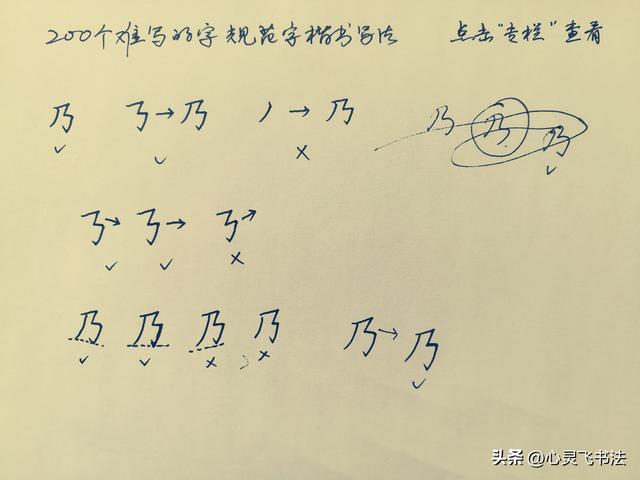 200个难写的字规范字楷书写法 点击"专栏"查看
乃 ㇋→乃 丿→乃 乃 乃 乃
✓ ✓ × ✓
㇋→ ㇋→ ㇋→
✓ ✓ ×
乃 乃 乃 乃 乃→乃
✓ ✓ × × ✓
头条 @心灵飞书法